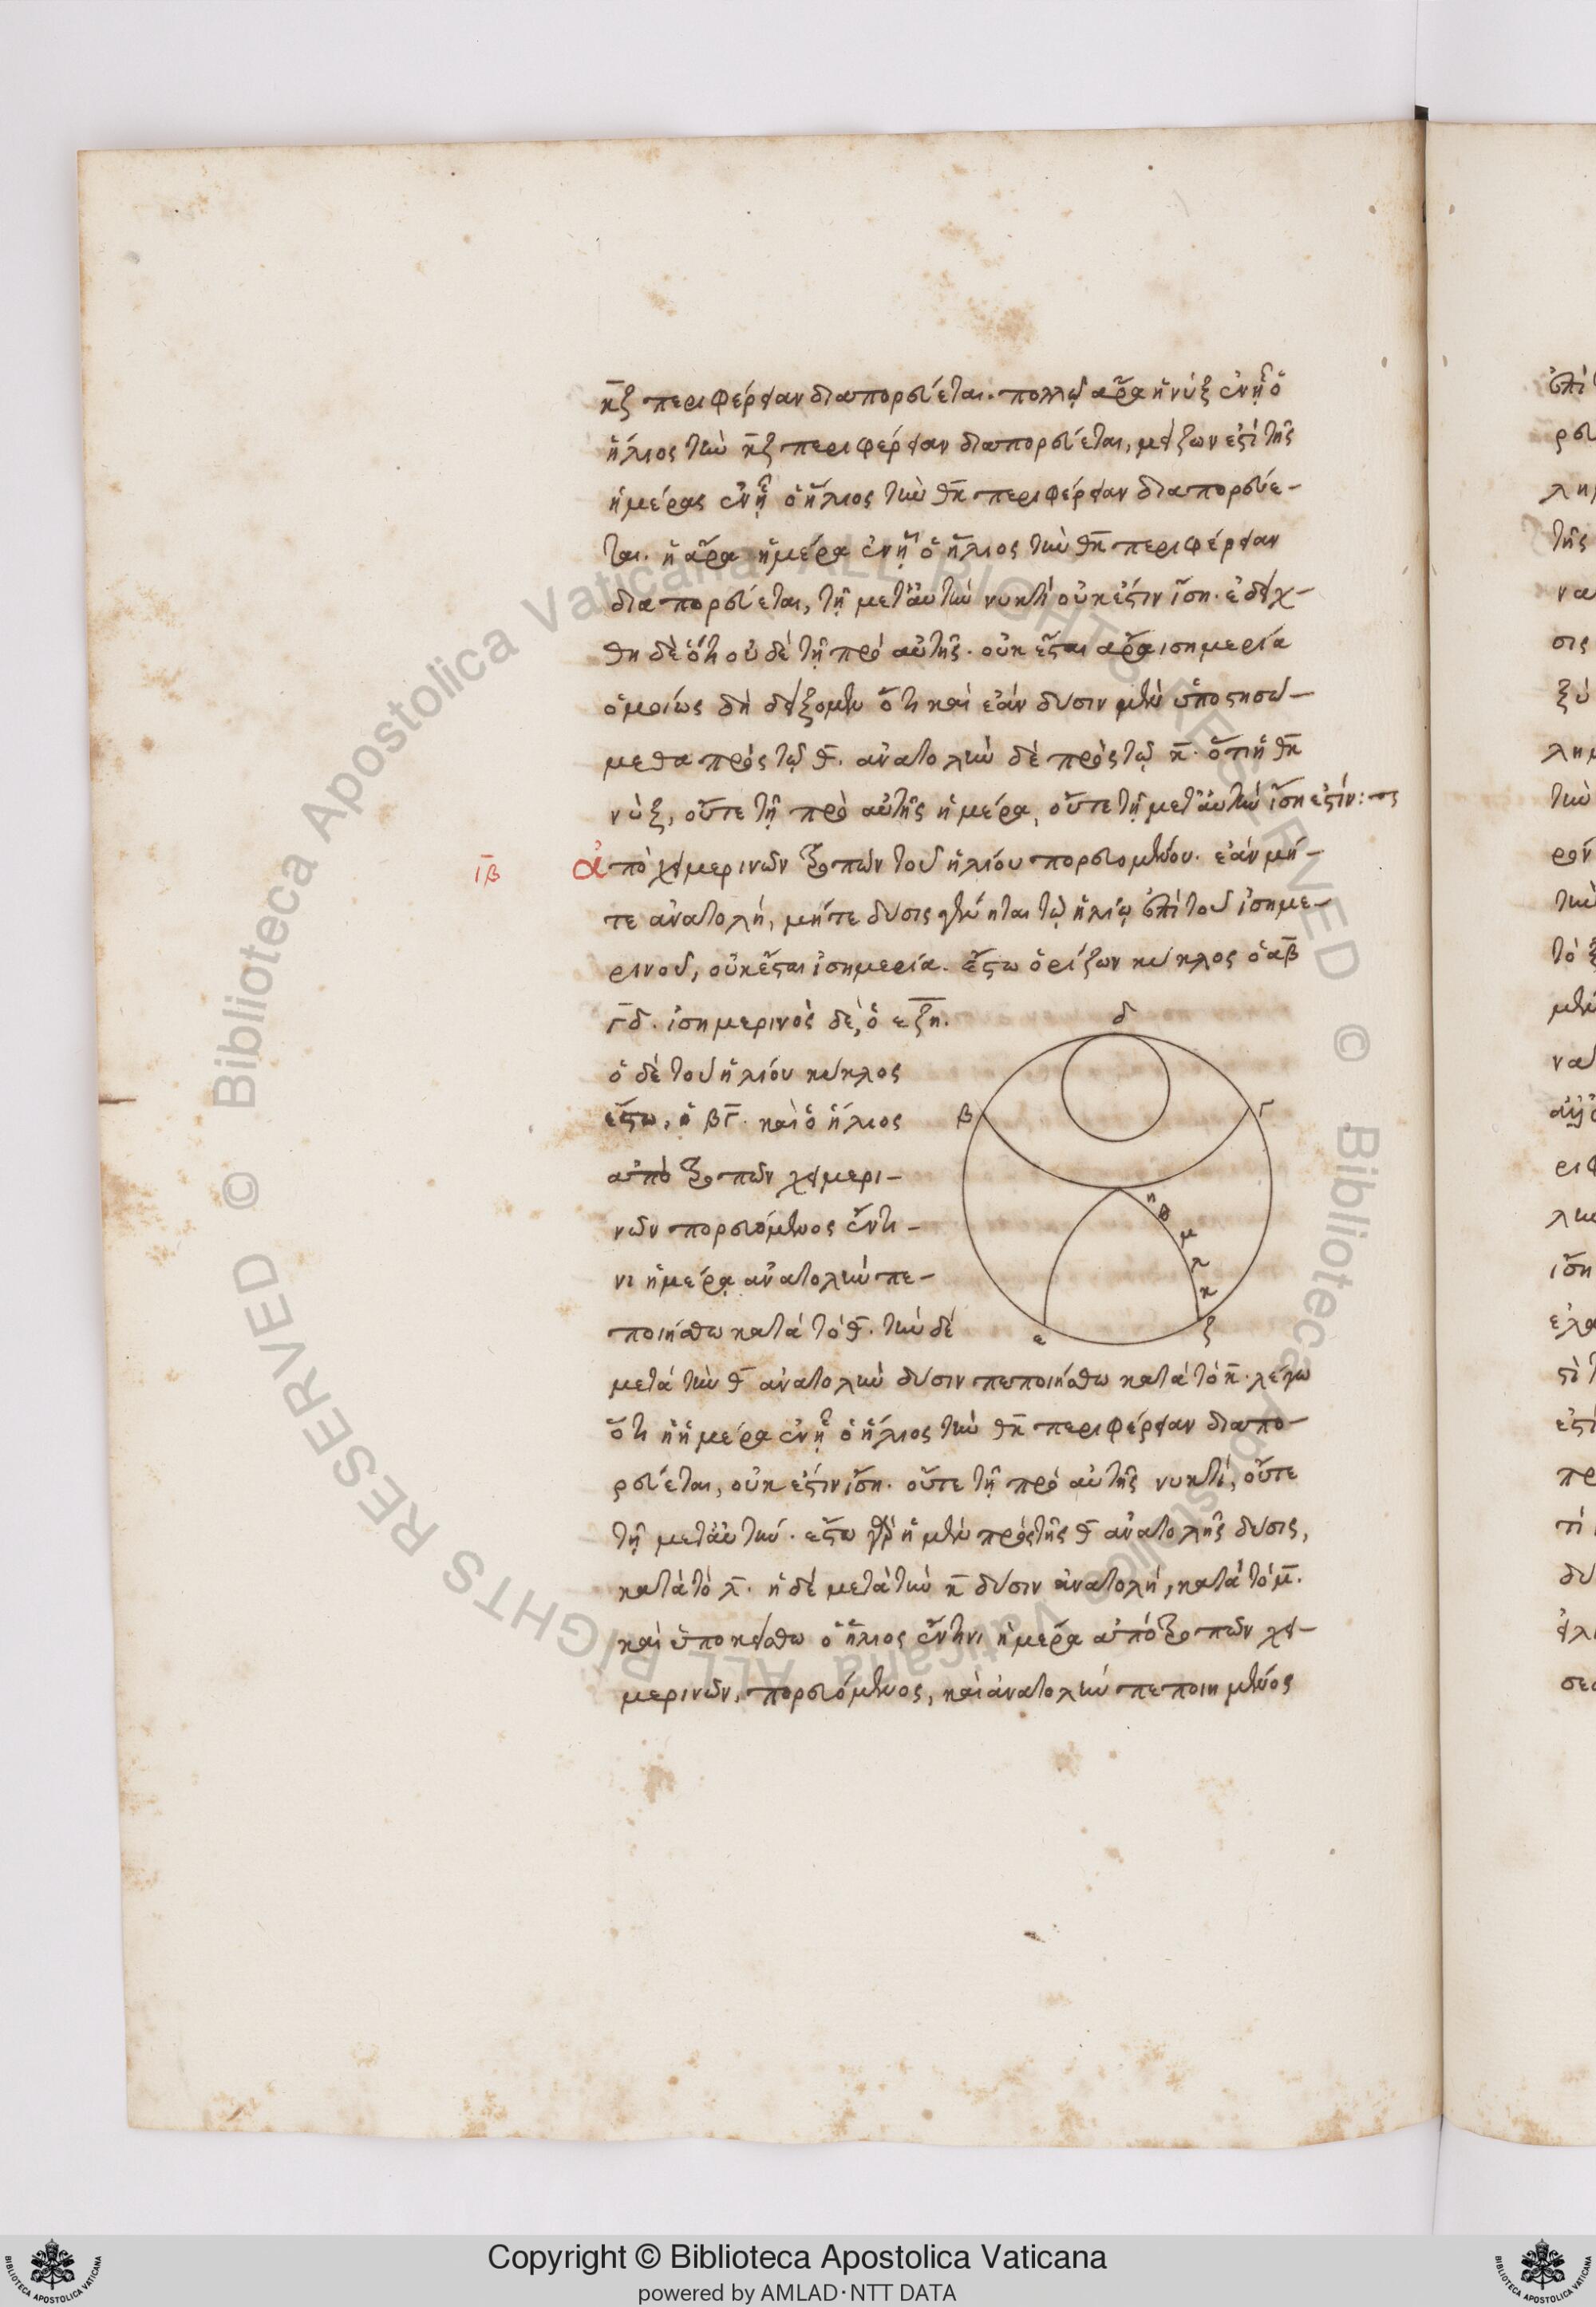 κ̅ζ περιφέρειαν διαπορεύεται. πολλῷ ἄρα ἡ νὺξ ἐν ᾗ ὁ
ἥλιος τὴν κ̅ζ περιφέρειαν διαπορεύεται, μείζων ἐστὶ τῆς
ἡμέρας ἐν ᾗ ὁ ἥλιος τὴν θ̅κ περιφέρειαν διαπορεύε-
ται. ἡ ἄρα ἡμέρα ἐν ᾗ ὁ ἥλιος τὴν θ̅κ περιφέρειαν
διαπορεύεται, τῇ μετ' αὐτὴν νυκτὶ οὐκ ἐστιν ἴση. ἐδείχ-
θη δὲ ὅτι οὐδὲ τῇ πρὸ αὐτῆς. οὐκ ἔσται ἄρα ισημερία
ὁμοίως δὴ δείξομεν ὅτι καὶ ἐὰν δυσιν μὲν ὑποστησώ-
μεθα πρὸς τῷ θ̅. ἀνατολὴν δὲ πρὸς τῷ κ̅. ὅτι ἡ θ̅κ
νὺξ, οὔτε τῇ πρὸ αὐτῆς ἡμέρα, οὔτε τῇ μετ' αὐτὴν ἴση ἐστίν:
ι̅β ἀπὸ χειμερινῶν τροπῶν τοῦ ἡλίου πορευομένου. ἐὰν μή-
τε ἀνατολὴ, μήτε δυσις γένηται τῷ ἡλίῳ ἐπὶ τοῦ ἰσημε-
ρινοῦ, οὐκ ἔσται ἰσημερία. ἔστω ὁρίζων κύκλος ὁ α̅β
γ̅δ. ἰσημερινὸς δὲ, ὁ ε̅ζ̅η.
ὁ δὲ τοῦ ἡλίου κύκλος
ἔστω, ὁ βγ̅. καὶ ὁ ἥλιος
ἀπὸ τροπῶν χειμερι-
νῶν πορευόμενος ἔν τι-
νι ἡμέρᾳ ἀνατολὴν πε-
ποιήσθω κατὰ τὸ θ̅. τὴν δὲ
μετὰ τὴν θ̅ ἀνατολὴν δύσιν πεποιήσθω κατὰ τὸ κ̅. λέγω
ὅτι ἡ ἡμέρα ἐν ᾗ ὁ ἥλιος τὴν θ̅κ περιφέρειαν διαπο-
ρεύεται, οὐκ ἐστιν ἴση. οὔτε τῇ πρὸ αὐτῆς νυκτὶ, οὔτε
τῇ μετ' αὐτήν. ἔστω γὰρ ἡ μὲν πρὸ τῆς θ̅ ἀνατολῆς δυσις,
κατὰ τὸ λ̅. ἡ δὲ μετὰ τὴν κ̅ δύσιν ἀνατολὴ, κατὰ τὸ μ̅.
καὶ ὑποκείσθω ὁ ἥλιος ἔν τινι ἡμέρα ἀπὸ τροπῶν χει-
μερινῶν, πορευόμενος, καὶ ἀνατολὴν πεποιημένος
δ
β
γ
η
θ
μ
λ
κ
ε
ζ
Copyright © Biblioteca Apostolica Vaticana
powered by AMLAD·NTT DATA